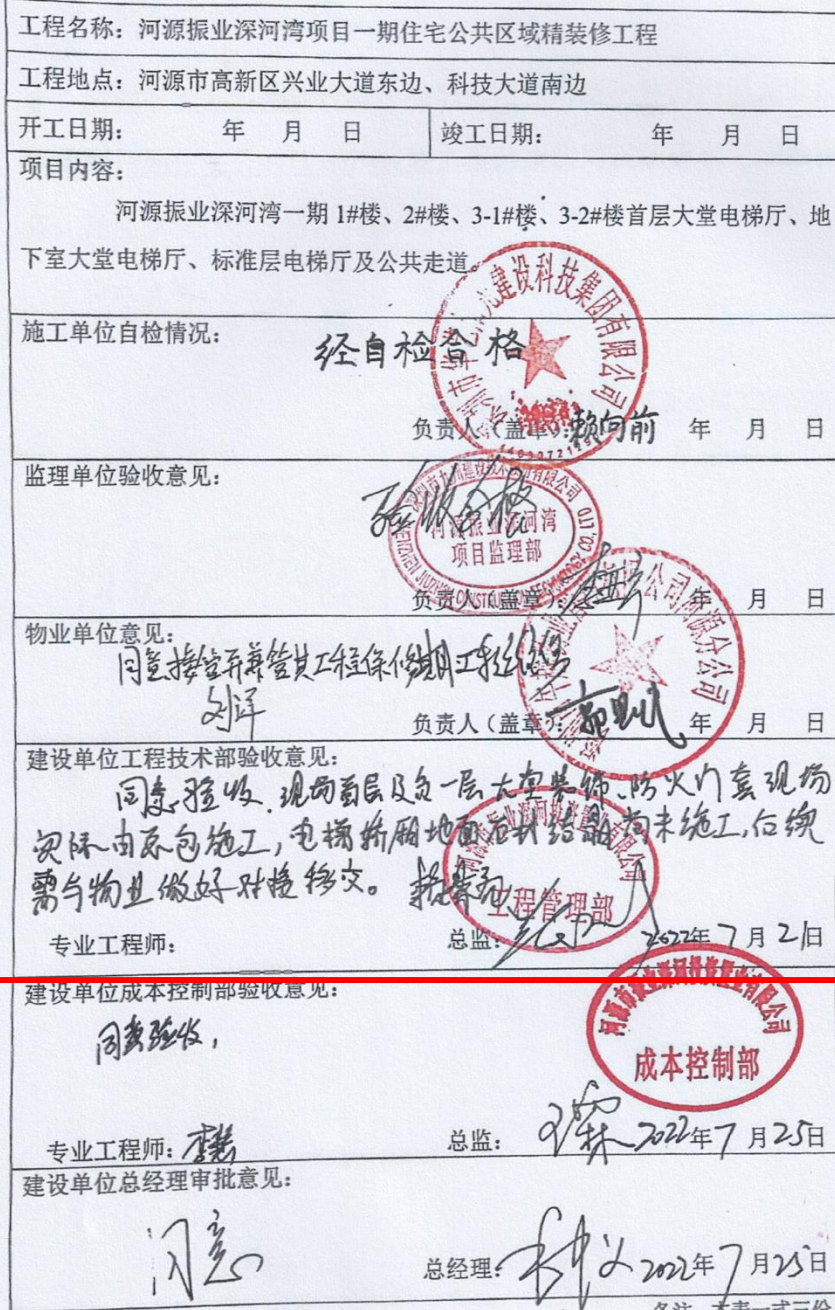 工程名称：河源振业深河湾项目一期住宅公共区域精装修工程
工程地点：河源市高新区兴业大道东边、科技大道南边
开工日期： 年 月 日 竣工日期： 年 月 日
项目内容：
河源振业深河湾一期 1#楼、2#楼、3-1#楼、3-2#楼首层大堂电梯厅、地
下室大堂电梯厅、标准层电梯厅及公共走道。
建设科技集团有限公司
施工单位自检情况：
经自检合格
负责人（盖章）：赖向前 年 月 日
监理单位验收意见：
验收合格
河源振业深河湾
项目监理部
负责人（盖章）： 年 月 日
公司河源分公司
物业单位意见：
同意接管并兼管其工程保修期工程
刘洋
负责人（盖章）： 年 月 日
建设单位工程技术部验收意见：
同意验收，现场首层及负一层大堂装饰、防火门套现场
实际由总包施工，电梯轿厢地面石材结晶尚未施工，后续
需与物业做好对接移交。
工程管理部
专业工程师： 总监： 2022年7月21日
建设单位成本控制部验收意见：
河源市振业深河投资置业有限公司
成本控制部
同意验收，
专业工程师： 总监： 2022年7月25日
建设单位总经理审批意见：
同意
总经理： 2022年7月25日
备注：本表一式三份